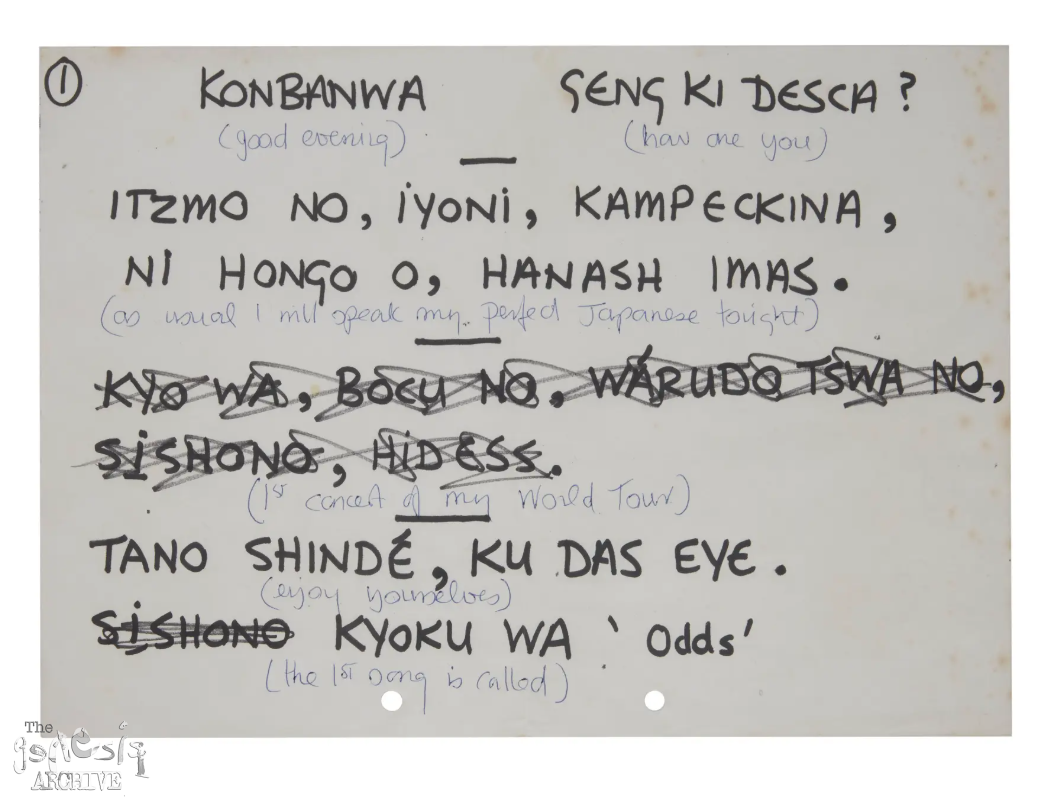 1
KONBANWA GENG KI DESCA?
(good evening) (how are you)
ITZMO NO, iYONi, KAMPECKINA,
Ni HONGO O, HANASH IMAS.
(as usual I will speak my perfect Japanese tonight)
KYO WA, BOCU NO, WÁRUDO TSWA NO,
SiSHONO, HiDESS.
(1st concert of my World Tour)
TANO SHINDÉ, KU DAS EYE.
(enjoy yourselves)
SiSHONO KYOKU WA 'Odds'
(the 1st song is called)
The Genesis
ARCHIVE